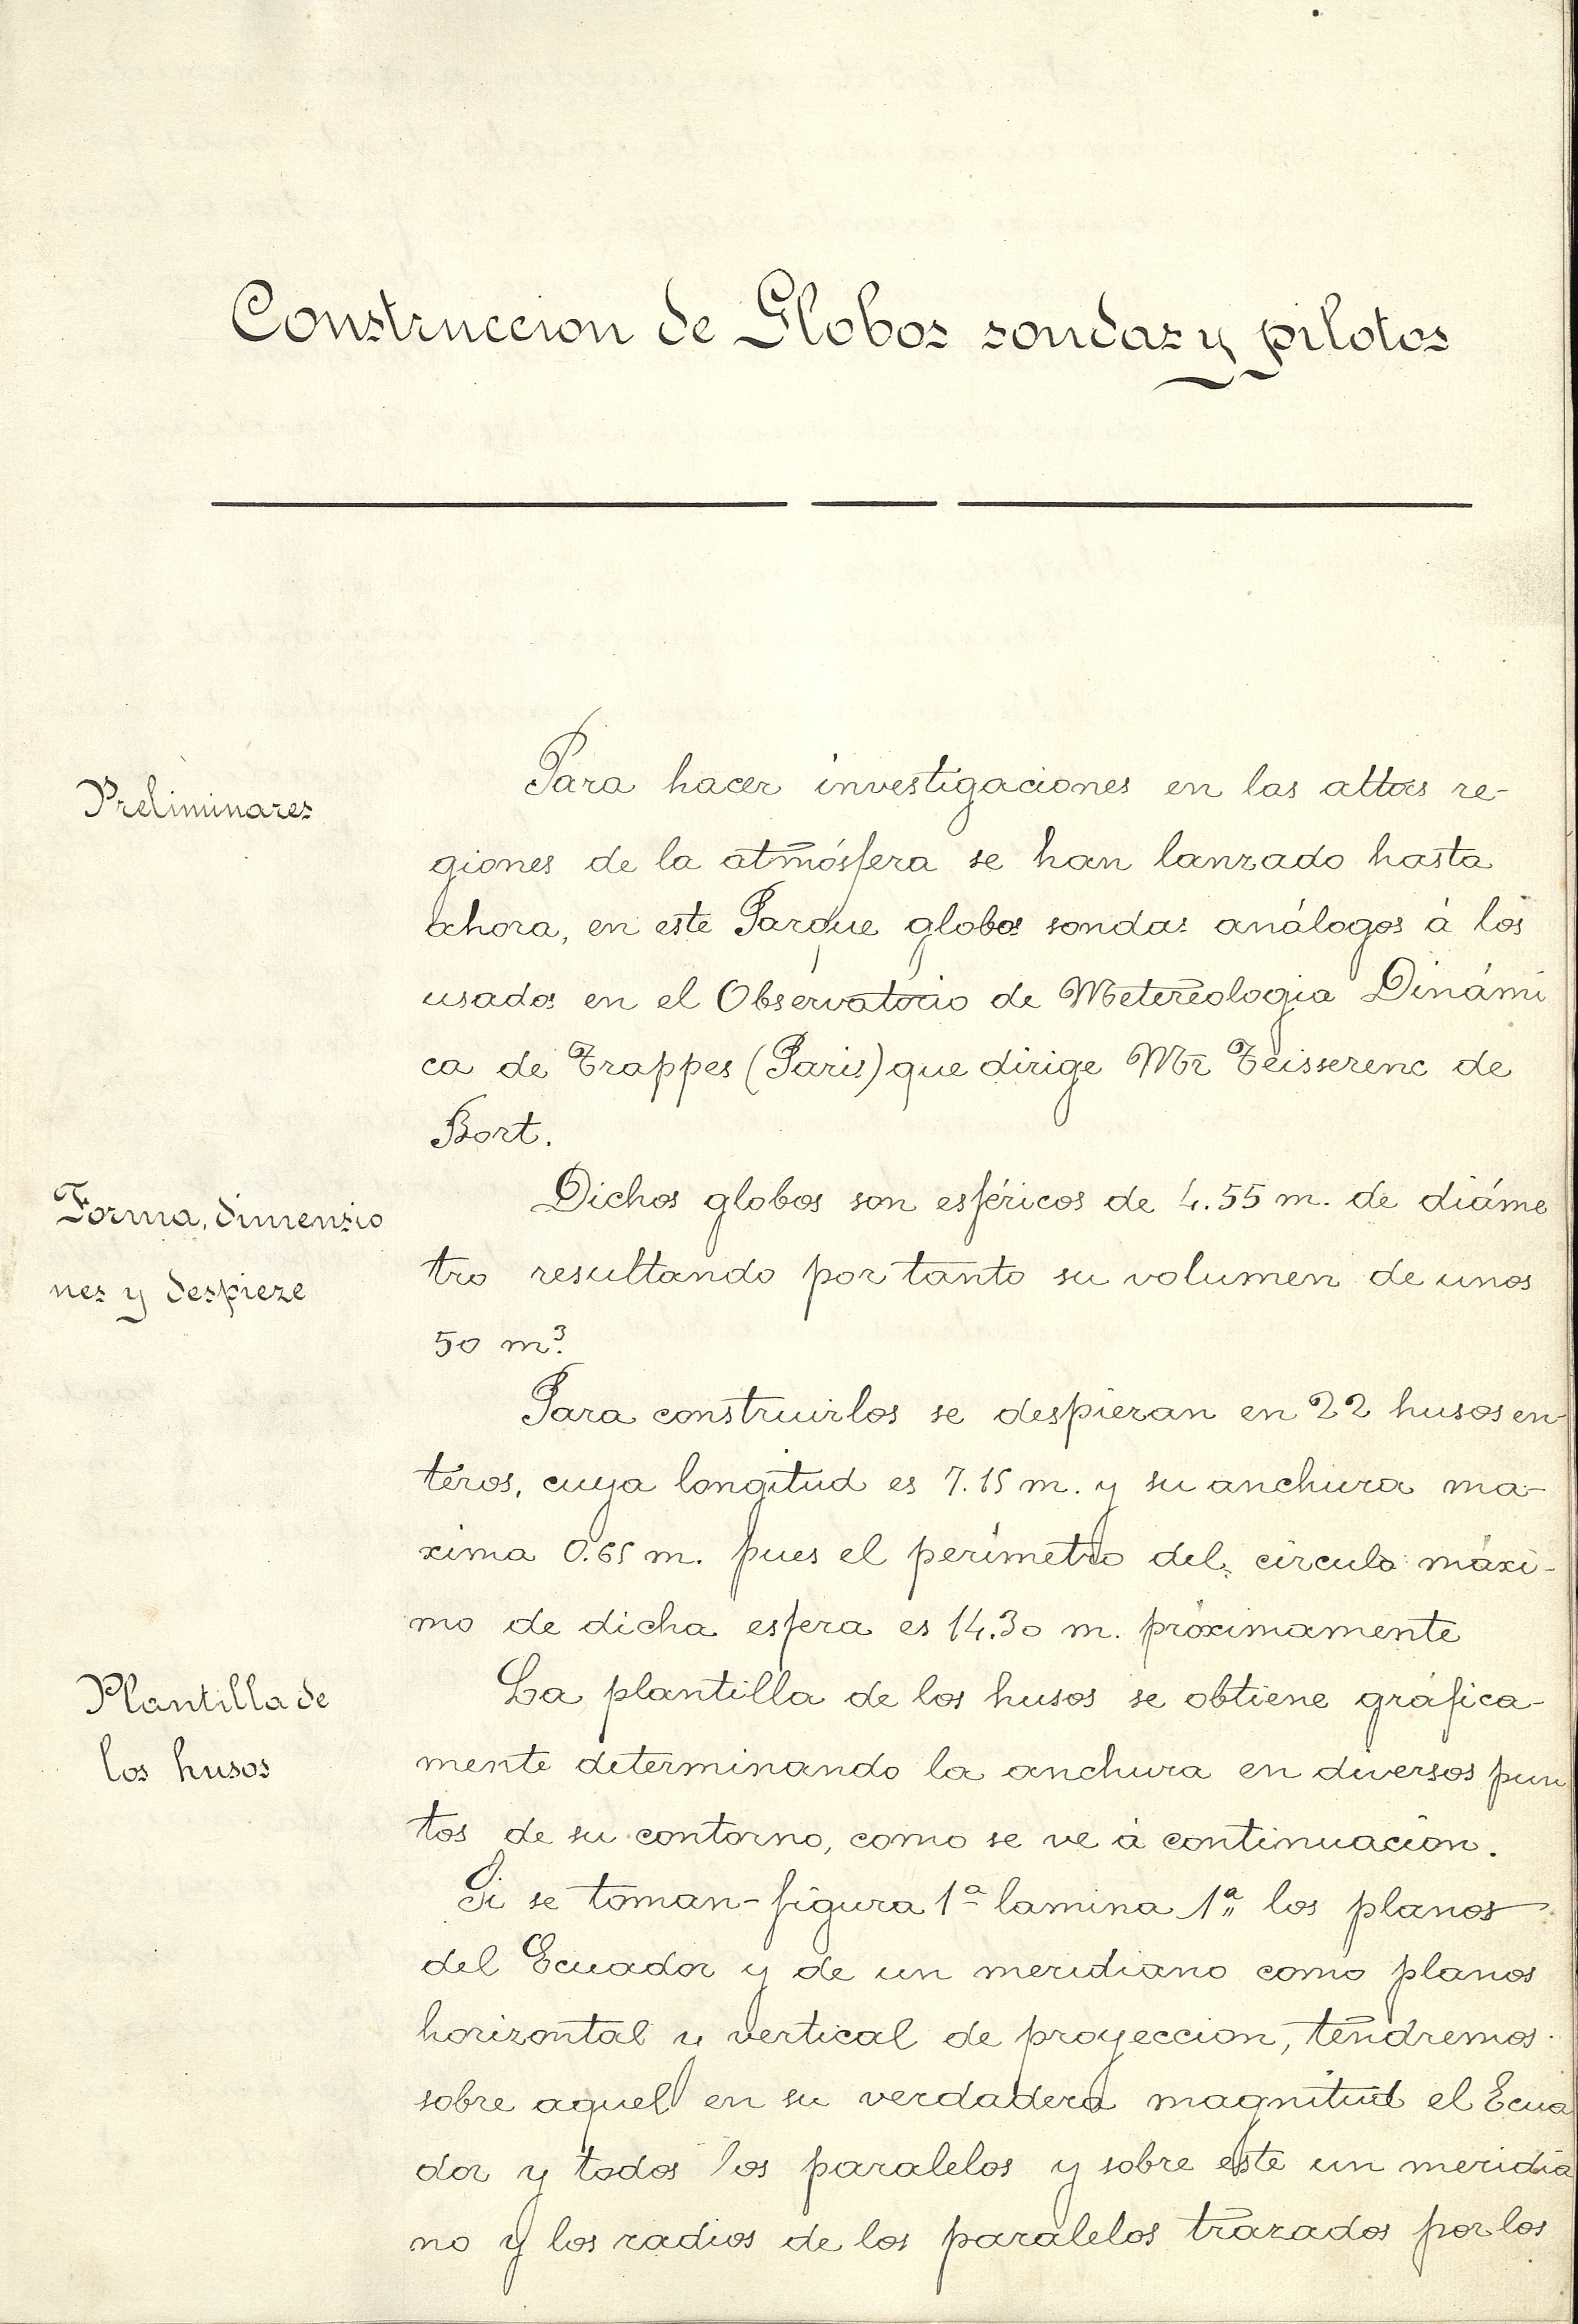 Construccion de Globos sondas y pilotos
Preliminares
Para hacer investigaciones en las altas re-
giones de la atmósfera se han lanzado hasta
ahora, en este Parque globos sondas análogos á los
usados en el Observatorio de Metereologia Dinámi
ca de Trappes (Paris) que dirige Mr Teisserenc de
Bort.
Forma, dimensio
nes y despieze
Dichos globos son esféricos de 4.55 m. de diáme
tro resultando por tanto su volumen de unos
50 m³.
Para construirlos se despiezan en 22 husos en
teros, cuya longitud es 7.15 m. y su anchura ma-
xima 0.65 m. pues el perímetro del circulo máxi-
mo de dicha esfera es 14.30 m. próximamente
Plantilla de
los husos
La plantilla de los husos se obtiene gráfica-
mente determinando la anchura en diversos pun
tos de su contorno, como se ve á continuación.
Si se toman-figura 1ª lamina 1ª los planos
del Ecuador y de un meridiano como planos
horizontal y vertical de proyeccion, tendremos
sobre aquel en su verdadera magnitud el Ecua
dor y todos los paralelos y sobre este un meridia
no y los radios de los paralelos trazados por los